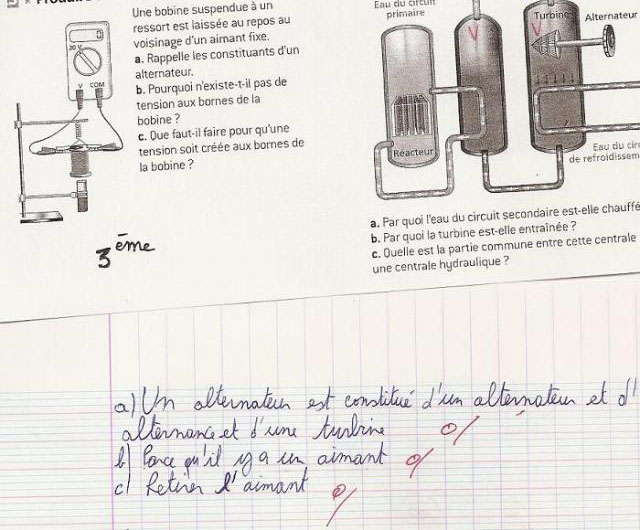 Une bobine suspendue à un
ressort est laissée au repos au
voisinage d'un aimant fixe.
a. Rappelle les constituants d'un
alternateur.
b. Pourquoi n'existe-t-il pas de
tension aux bornes de la
bobine ?
c. Que faut-il faire pour qu'une
tension soit créée aux bornes de
la bobine ?
20 V
0
V COM
3ème
Eau du circuit
primaire
Turbine
Alternateur
V
V
Réacteur
Eau du
de
a. Par quoi l'eau du circuit secondaire est-elle
b. Par quoi la turbine est-elle entraînée ?
c. Quelle est la partie commune entre cette centrale
une centrale hydraulique ?
a) Un alternateur est constitué d'un alternateur et d'
alternance et d'une turbine
b) Parce qu'il y a un aimant
c) Retirer l'aimant